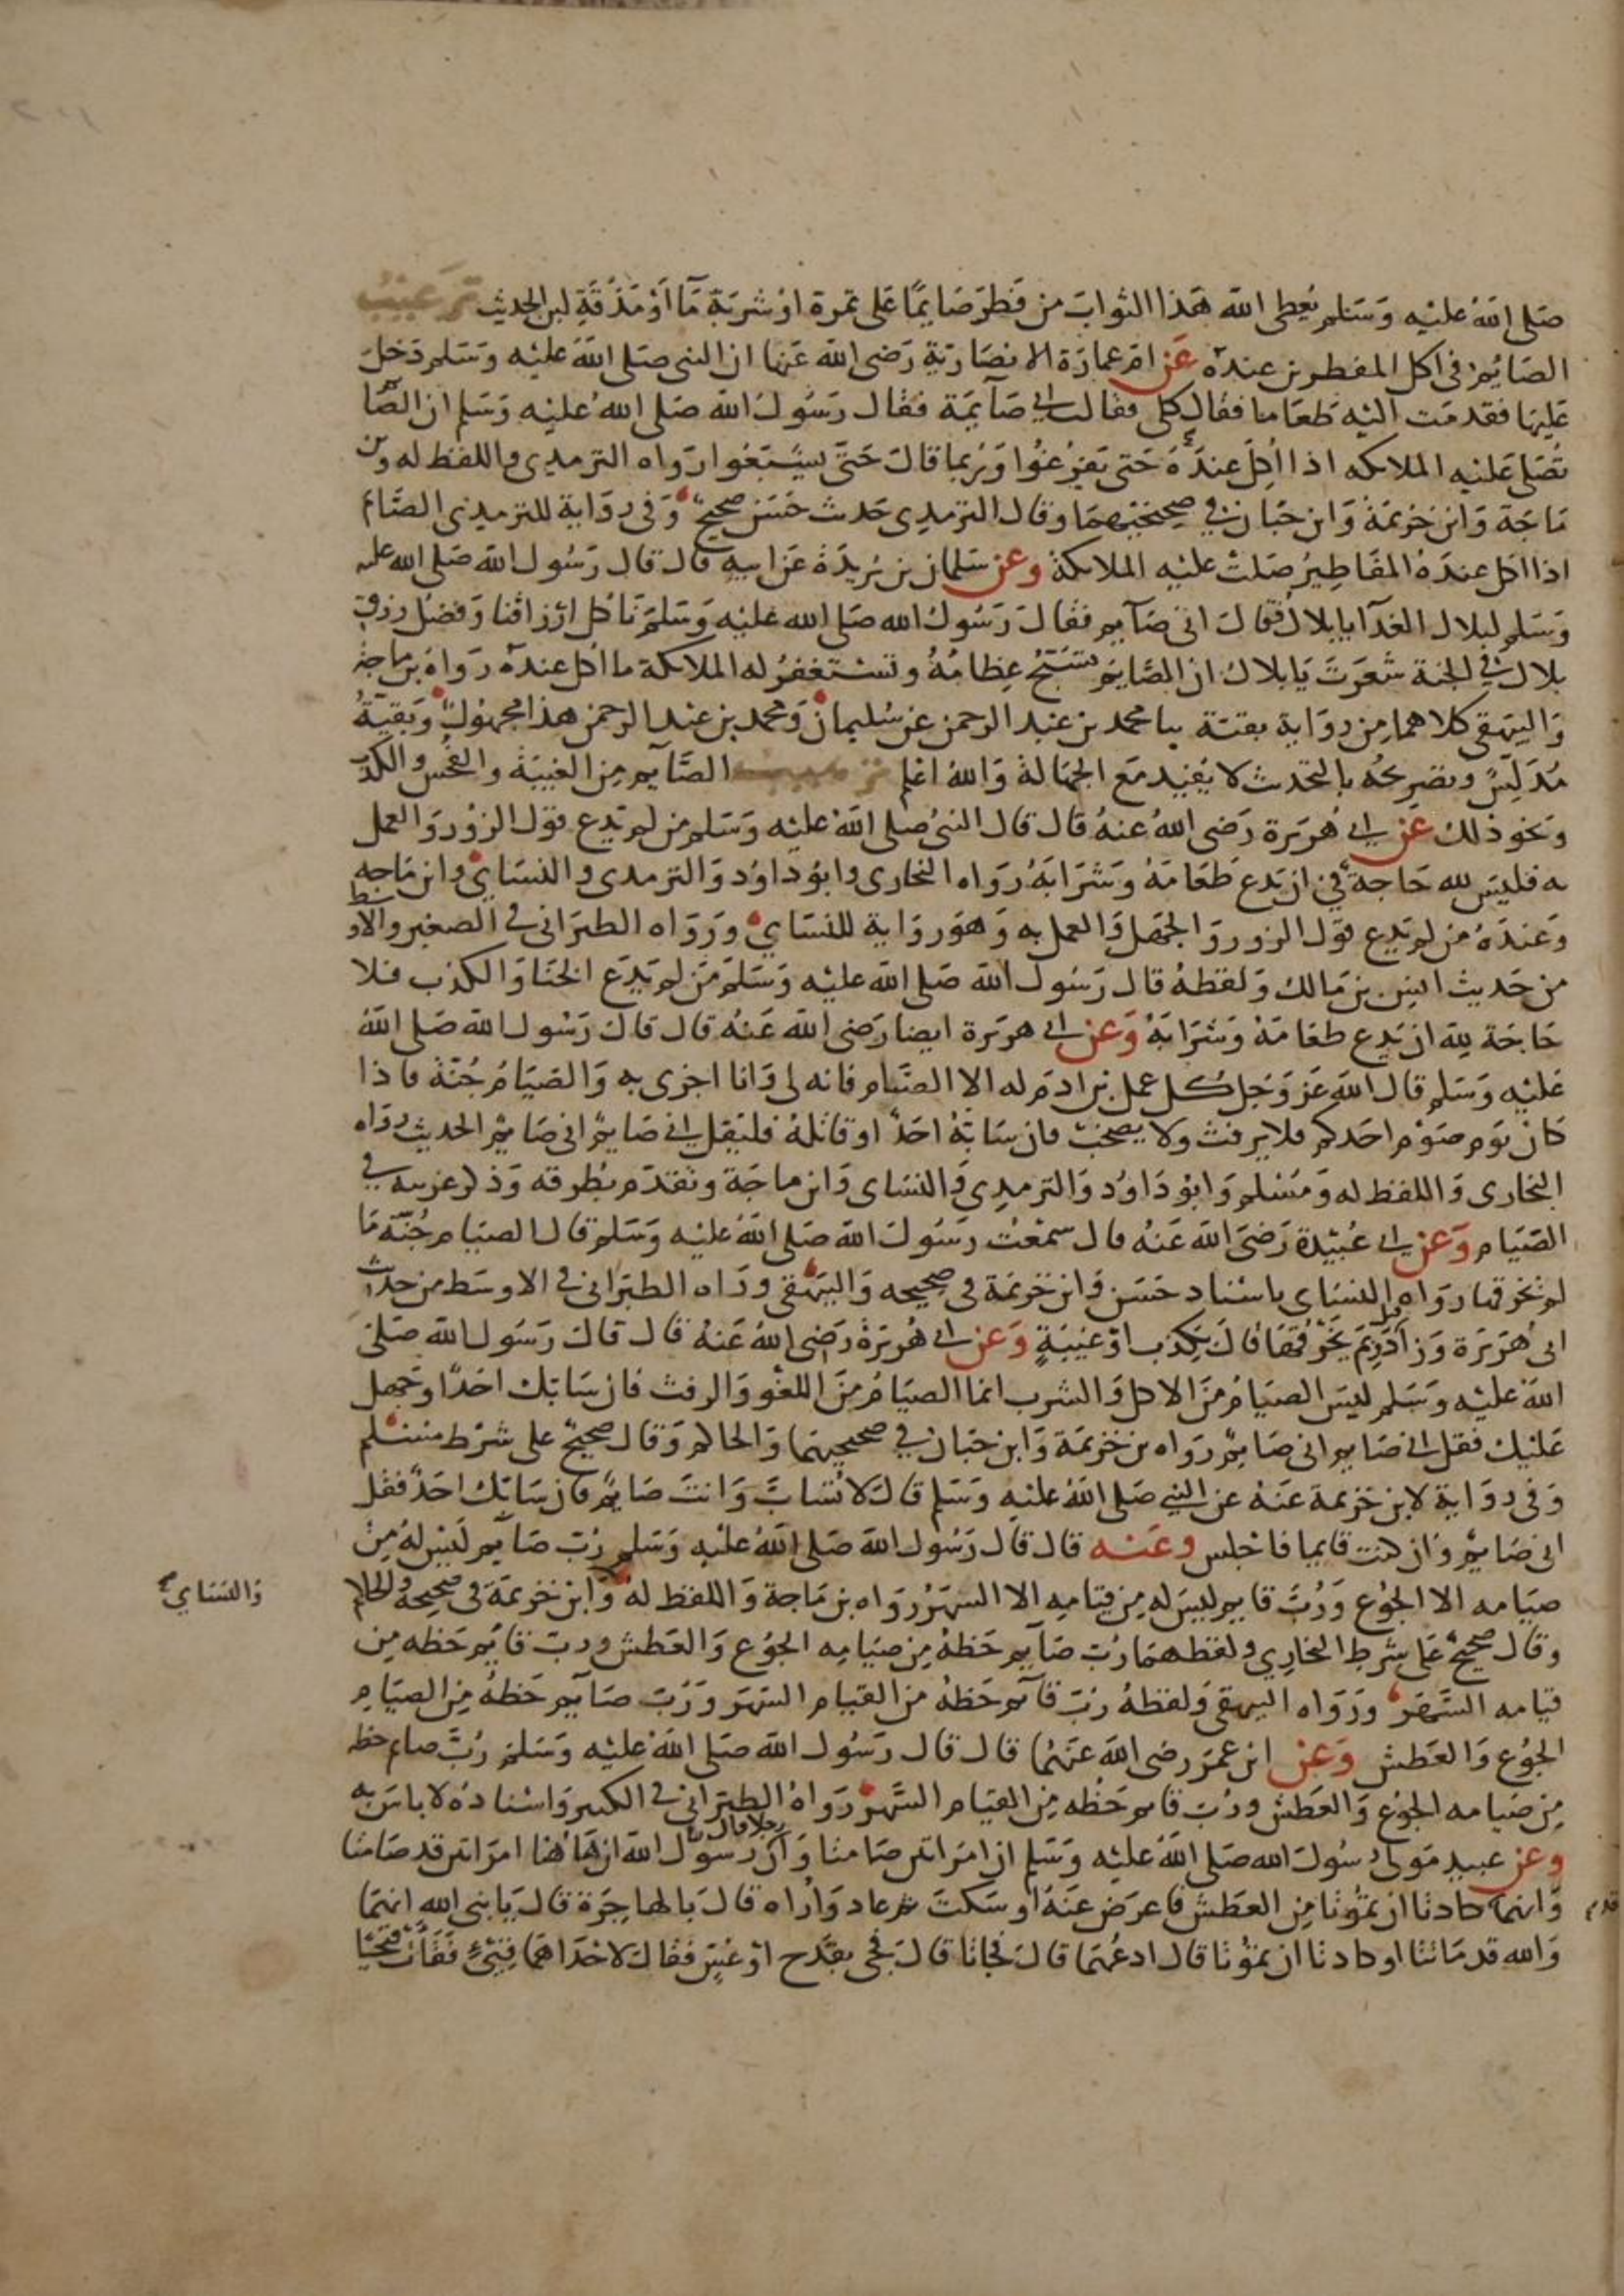 صَلى اللهُ عليْه وَسَلم يُعطى الله هَذا الثوابَ من فَطرَ صَايمًا عَلى تمرة اوْ شربَة مَآ أوْ مَذْقَةِ لبن الحديث تَرغيْبُ
الصَايم فى اكل المفطرين عندهُ عَن ام عمارَة الانصَارية رَضى الله عَنها ان النبى صَلى اللهُ عليْه وَسَلم دَخلَ
عَليهَا فقدمَت اليْه طَعَاما فقال كلى فقالت انى صَآيمَة فقال رَسُولُ الله صَلى اللهُ عليْه وَسَلم ان الصَّا
تُصَلى عَليْه الملايكه اذا اُكِلَ عندَهُ حَتى يَفرُغوُا وَرُبما قالَ حَتَّى يشبَعُوا رَواه الترمِدِى واللفظ له وبن
مَاجَة وَابن خزيمَة وَابن حَبان في صحيحَيْهمَا وقال الترمذِى حَديث حَسَن صحيحٌ وَفى روَاية للترمِذِى الصَّايم
اذا اكلَ عندَهُ المفَاطِيرُ صَلتْ عَليْه الملايكة وعَن سَلمان بن بُريدَة عَن ابيهِ قال قال رَسُول الله صَلى الله عليه
وَسَلم لبلال الغدَآ يا بلالُ فقالَ انى صَآيم فقالَ رَسُولُ الله صَلى الله عليْه وَسَلم نَاكل ارْزاقنا وَفضْل رزق
بلال في الجنة شعَرتَ يَا بلال ان الصَّايمَ تسَبِّحُ عِظامُهُ وتَسْتَغفرُ له الملايكة ما اُكل عندهُ رَواهُ بن ماجة
وَالبيهَقى كلاهما مِن روَاية بقيَة ثنا محمد بن عَبد الرحمن عن سُليمانَ وَمحمد بن عَبد الرحمن هذا مجهوُلٌ وَبقيّةُ
مُدَلِّسٌ وتصْريحُه بالتحديث لا يُفيْد مَع الجهَالة وَاللهُ اعْلم ترهيب الصَّآيم مِن الغيبَة والفُحْش والكذب
وَنحو ذلك عن ابى هُريرة رَضى اللهُ عنهُ قال قال النبىُ صلى اللهُ عليْه وَسَلم من لم يَدع قوْل الزوُر وَالعمل
به فليسَ لله حَاجةٌ في ان يَدع طَعَامَهُ وَشرَابَهُ رَوَاه البخارى وابوُ داوُد وَالترمدى والنسَاىُ وابن مَاجه
وَعندَهُ من لم يَدع قوْل الزور وَالجهَل وَالعمل به وَهوَ روَاية للنسَايٍ وَرَوَاه الطبَرانى فى الصَغير والاوسط
من حَديث انس بن مَالك وَلفظهُ قال رَسُول الله صَلى الله عليْه وَسَلمَ مَن لم يَدَع الخَنا وَالكذب فلا
حَاجَة لله ان يَدع طعَامَهُ وَشرَابَهُ وَعَن ابى هريرة ايضا رَضى الله عَنْه قال قالَ رَسُول الله صَلى اللهُ
عَليْه وَسَلم قال الله عَز وَجل كُل عمل بن ادَم له الا الصَّيام فانه لى وَانا اجْزى به وَالصيَامُ جُنّة فاذا
كان يَوم صَوْم احَدكم فلا يرفث ولا يَصخبْ فان سَابّهُ احَدٌ او قاتلهُ فليَقل انى صَايمٌ انى صَايمٌ الحديث رَوَاه
البخارى وَاللفظ له وَمُسْلم وَابوُ دَاوُد وَالترمذِى وَالنسَاى وَابن ماجَة وتقدَم بطُرقه وَذكر غريبه في
الصَيَام وَعن ابى عُبيْدة رَضىَ الله عَنهُ قال سَمعْتُ رَسُول الله صَلى اللهُ عليْه وَسَلم قال الصيَام جُنّة مَا
لم يَخرقها رَوَاه النسَاى باسْناد حَسَن وَابن خزيمَة فى صحيحه وَالبيهَقى ورَاه الطبرَانى فى الاوسَط من حديث
ابى هُرَيرَة وَزادَ قيل وبم يَخرقهَا قالَ بكذب اوْ غيْبَةٍ وَعَن ابى هُريرَة رَضى اللهُ عَنهُ قال قالَ رَسُول الله صَلى
اللهُ عليْه وَسَلم ليسَ الصيَامُ منَ الاكل وَالشرب انما الصيَامُ منَ اللغْو وَالرفث فان سَابّك احَدٌ او جَهل
عَليْك فقل انى صَايم انى صَايمٌ رَواه بن خزيمَة وَابن حبَان في صحيحيهمَا وَالحاكم وَقال صحيحٌ على شرَط مسْلم
وَفى روَاية لابن خزيمة عَنهُ عن النبى صَلى اللهُ عليْه وَسَلم قالَ لا تُسَابَّ وَانتَ صَايمٌ فان سَابّك احَدٌ فقل
انى صَايمٌ وَان كنتَ قايما فاجْلس وعَنه قال قال رَسُول الله صَلى اللهُ عليْه وَسَلم رُبَّ صَآيم ليْسَ لهُ مِنْ
صيَامه الا الجُوُع وَرُبَّ قايم ليسَ له مِن قيَامِهِ الا السَهَرُ رَوَاه بن مَاجة وَاللفظ لهُ وَابن خزيمَة فى صحيحه والحاكم
والنسَاي
وقال صحيحٌ عَلى شَرط البخارِي ولفظهمَا رُبَّ صَآيم حَظهُ مِن صيَامِه الجوُع وَالعَطش ورب قايم حَظه مِن
قيَامه السَّهَر وَرَوَاه البيهقى وَلفظهُ رُبّ قآيم حَظهُ منَ القيَام السَهَر وَرُبّ صَآيم حَظهُ مِن الصيَام
الجوُع وَالعَطش وَعَن ابن عمَرَ رضى الله عَنهُما قال قال رَسُول الله صَلى اللهُ عليْه وَسَلم رُبَّ صايم حظه
مِن صيَامه الجوُع وَالعَطش ورُبّ قايم حَظُه مِن القيَام السَّهَر رَوَاهُ الطبَرانى فى الكبير وَاسْنادُه لا باسَ به
وعن عبيد مَولى رَسُول الله صَلى اللهُ عليْه وَسَلم ان امرَاتين صَامتا وَان رجلا قال يا رَسُولَ الله ان هَاهُنا امرَاتين قد صَامتا
وَانهما كادتا ان تمُوُتا مِن العَطش فاعرَض عَنهُ او سَكتَ ثم عاد وَارُاه قالَ بالهاجرَة قالَ يَا نبى الله انهمَا
وَالله قد مَاتتا او كادتا ان تموُتا قال ادعُهمَا قالَ فجاتا قالَ فجى بقدَح اوْ عُسٍ فقالَ لاحْدَاهما قِيْئِي فقَاءَتْ قيْحًا